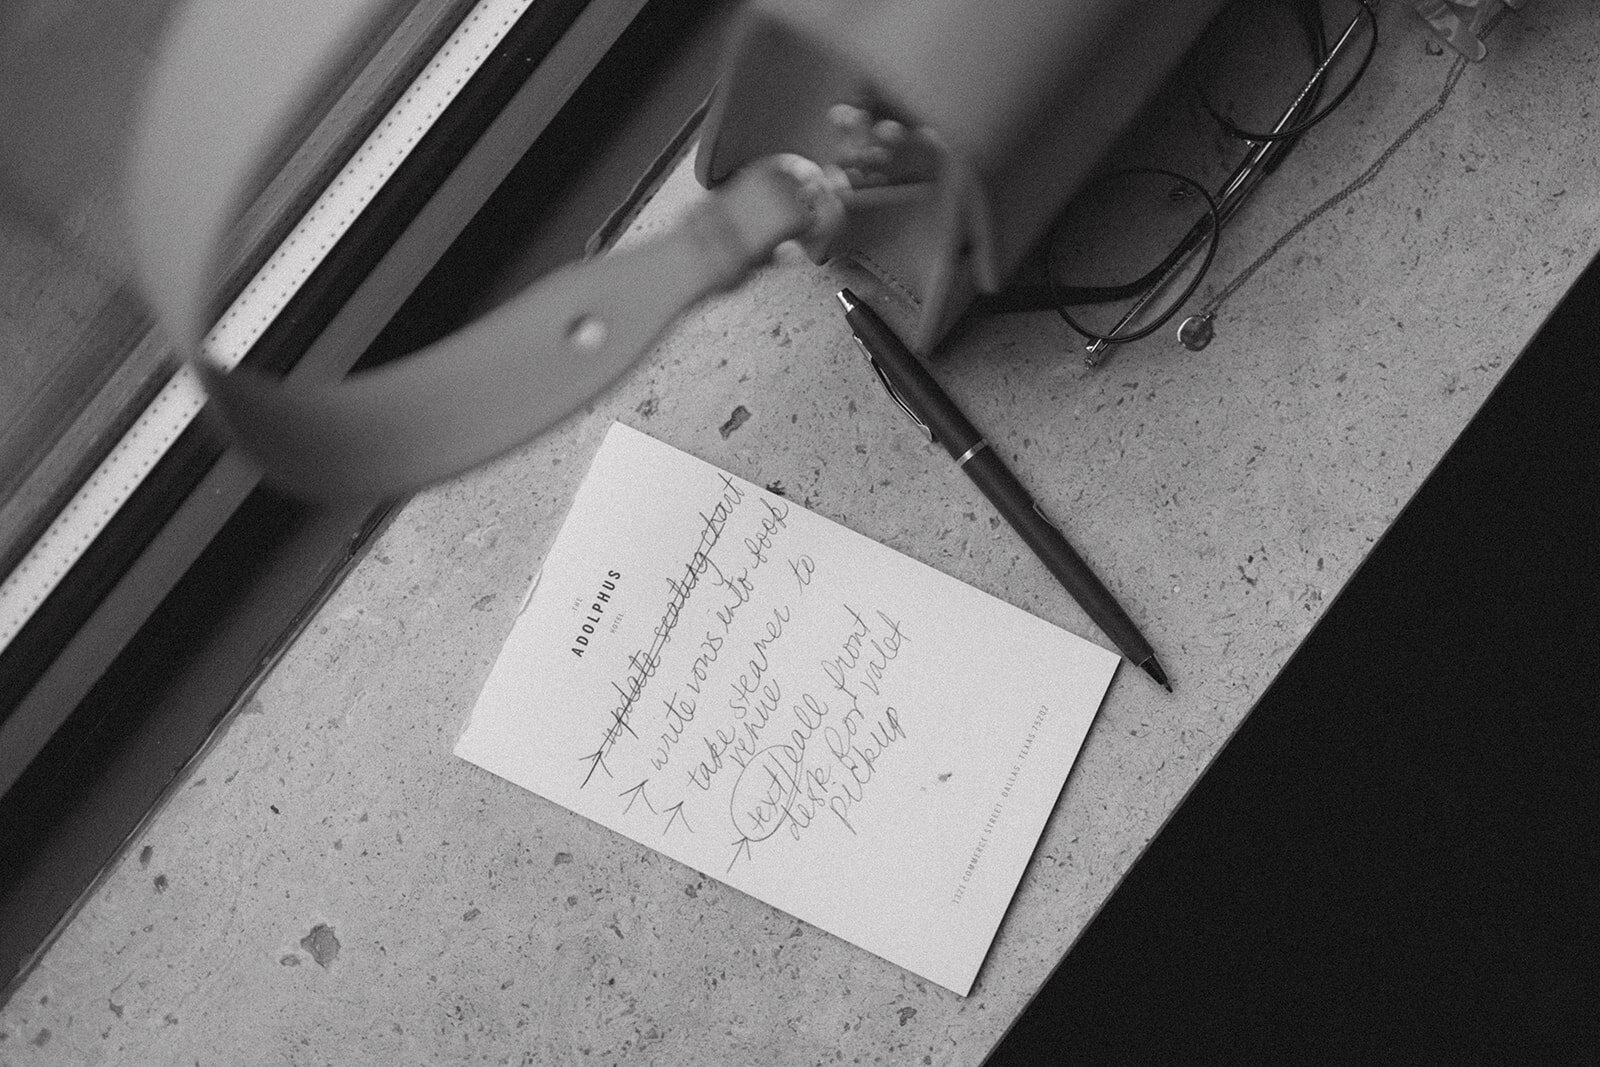 THE
ADOLPHUS
HOTEL
→ update seating chart
→ write vows into book
→ take steamer to
venue
→ text/call front
desk for valet
pickup
1321 COMMERCE STREET DALLAS TEXAS 75202